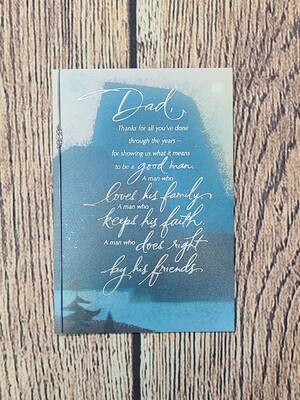 Dad,
Thanks for all you've done
through the years—
for showing us what it means
to be a good man.
A man who
loves his family.
A man who
keeps his faith.
A man who does right
by his friends.